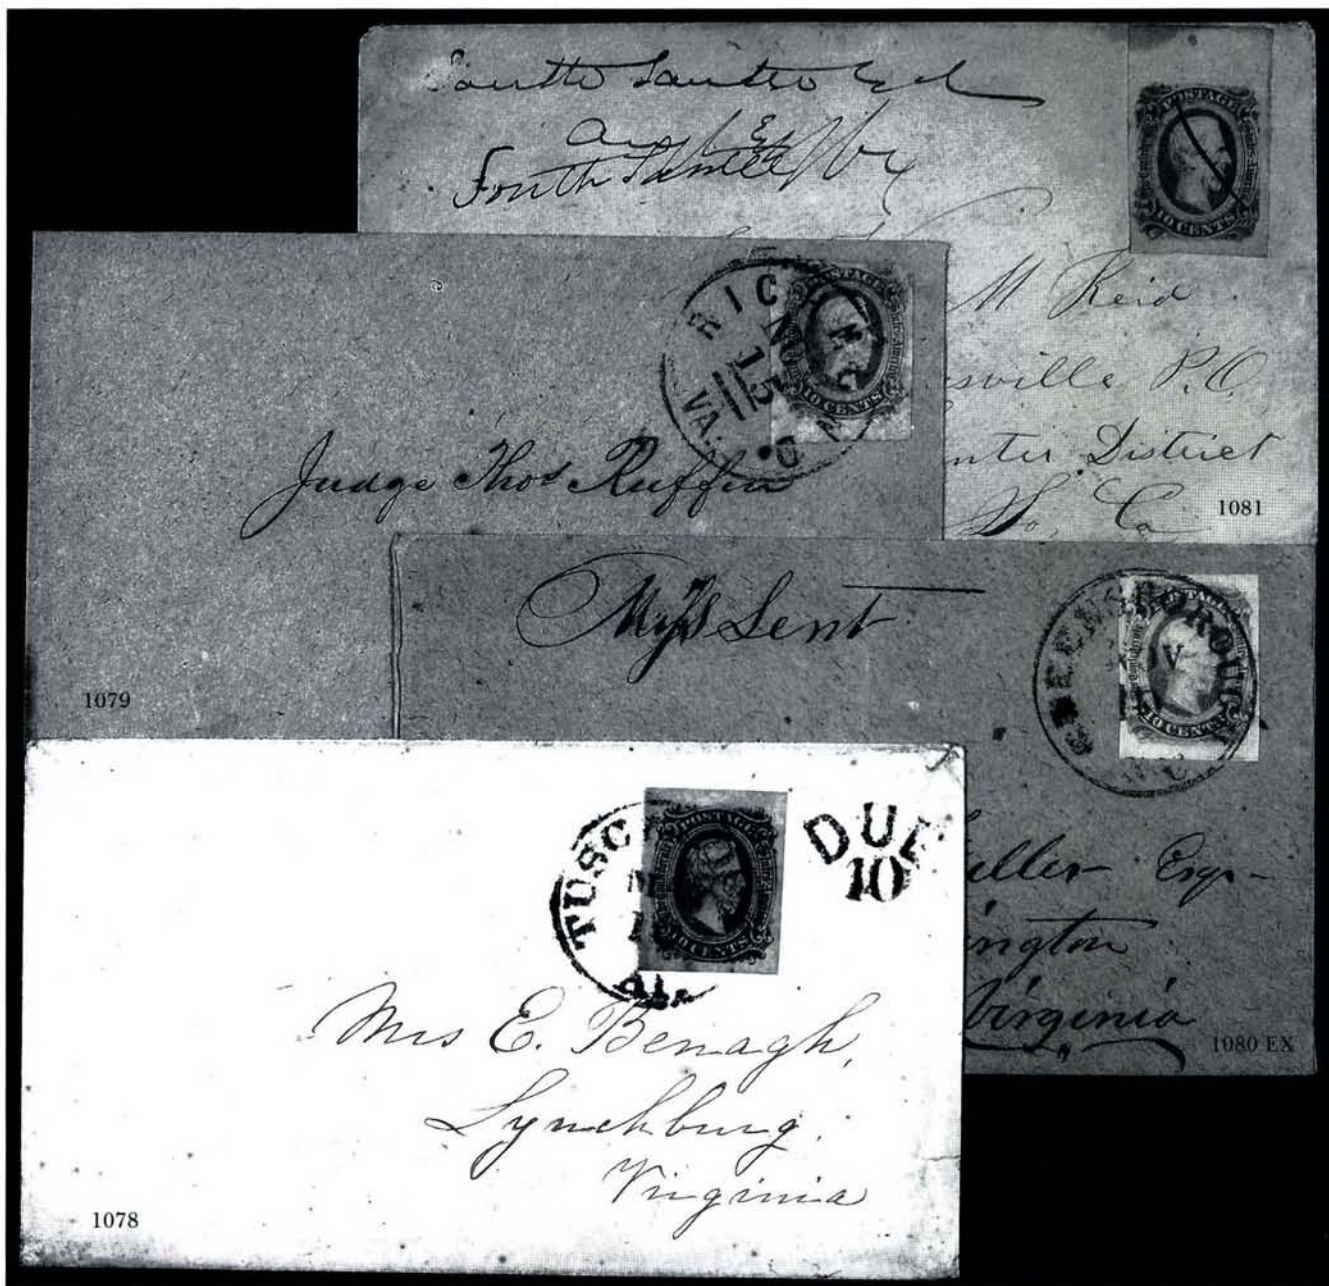 South Santee
Aug
South Santee
POSTAGE
10 CENTS
M Reid
sville P.O.
nter District
So, Ca
1081
RICHMOND
15
VA.
POSTAGE
10 CENTS
Judge Thos Ruffin
1079
Sent
GREENSBOROUGH
NV
N.C.
POSTAGE
10 CENTS
eller Esqr
ington
Virginia
1080 EX
TUSC
M
1
ALA
POSTAGE
10 CENTS
DUE
10
Mrs E. Benagh,
Lynchburg.
Virginia
1078